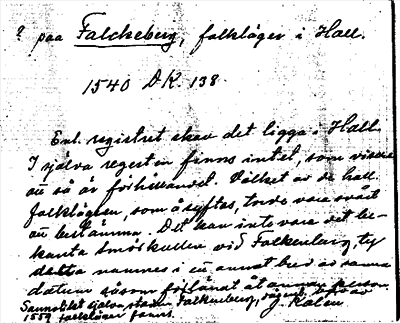 ? paa Falckeberg, falkläger i Hall.
1540 DK. 138.
Enl. registret skav det ligga i Hall.
I själva regesten finns intet, som visar
att så är förhållandet. Vilket av de hall.
falklägen, som åsyftas, torde vara svårt
att bestämma. Det kan inte vara det be-
kanta Smörkullen vid Falkenberg, ty
detta namnes i ett annat brev av samma
datum såsom förlänat åt annan person.
Sannolikt själva staden Falkenberg,
1557 falkläger fanns. J. Kalén